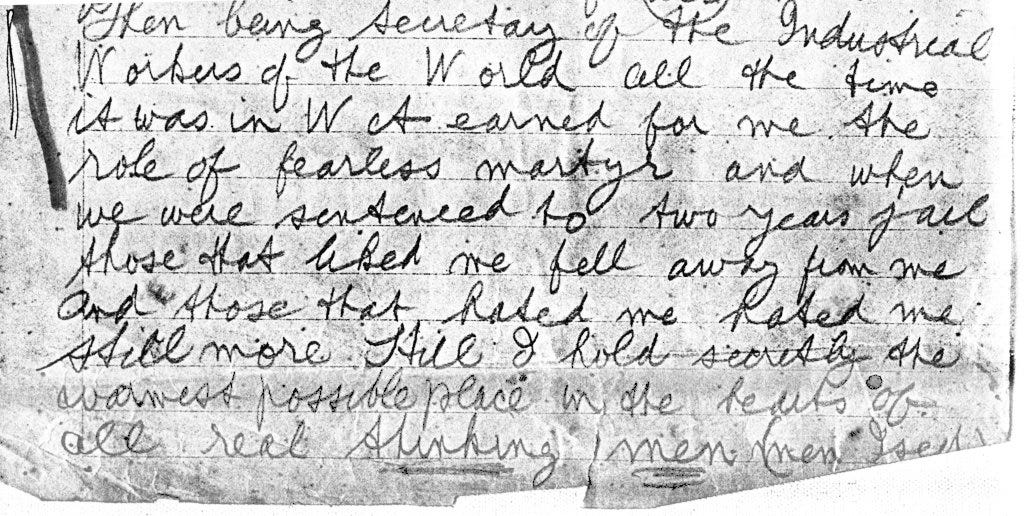 Then being secretary of the Industrial
Workers of the World all the time
it was in W A earned for me the
role of fearless martyr and when
we were sentenced to two years jail
those that liked me fell away from me
and those that hated me hated me
still more. Still I hold secretly the
warmest possible place in the hearts of
all real thinking men (men I said